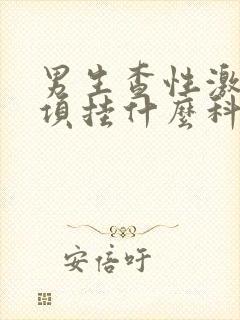 男生查性激
项挂什麼科
安倍吁